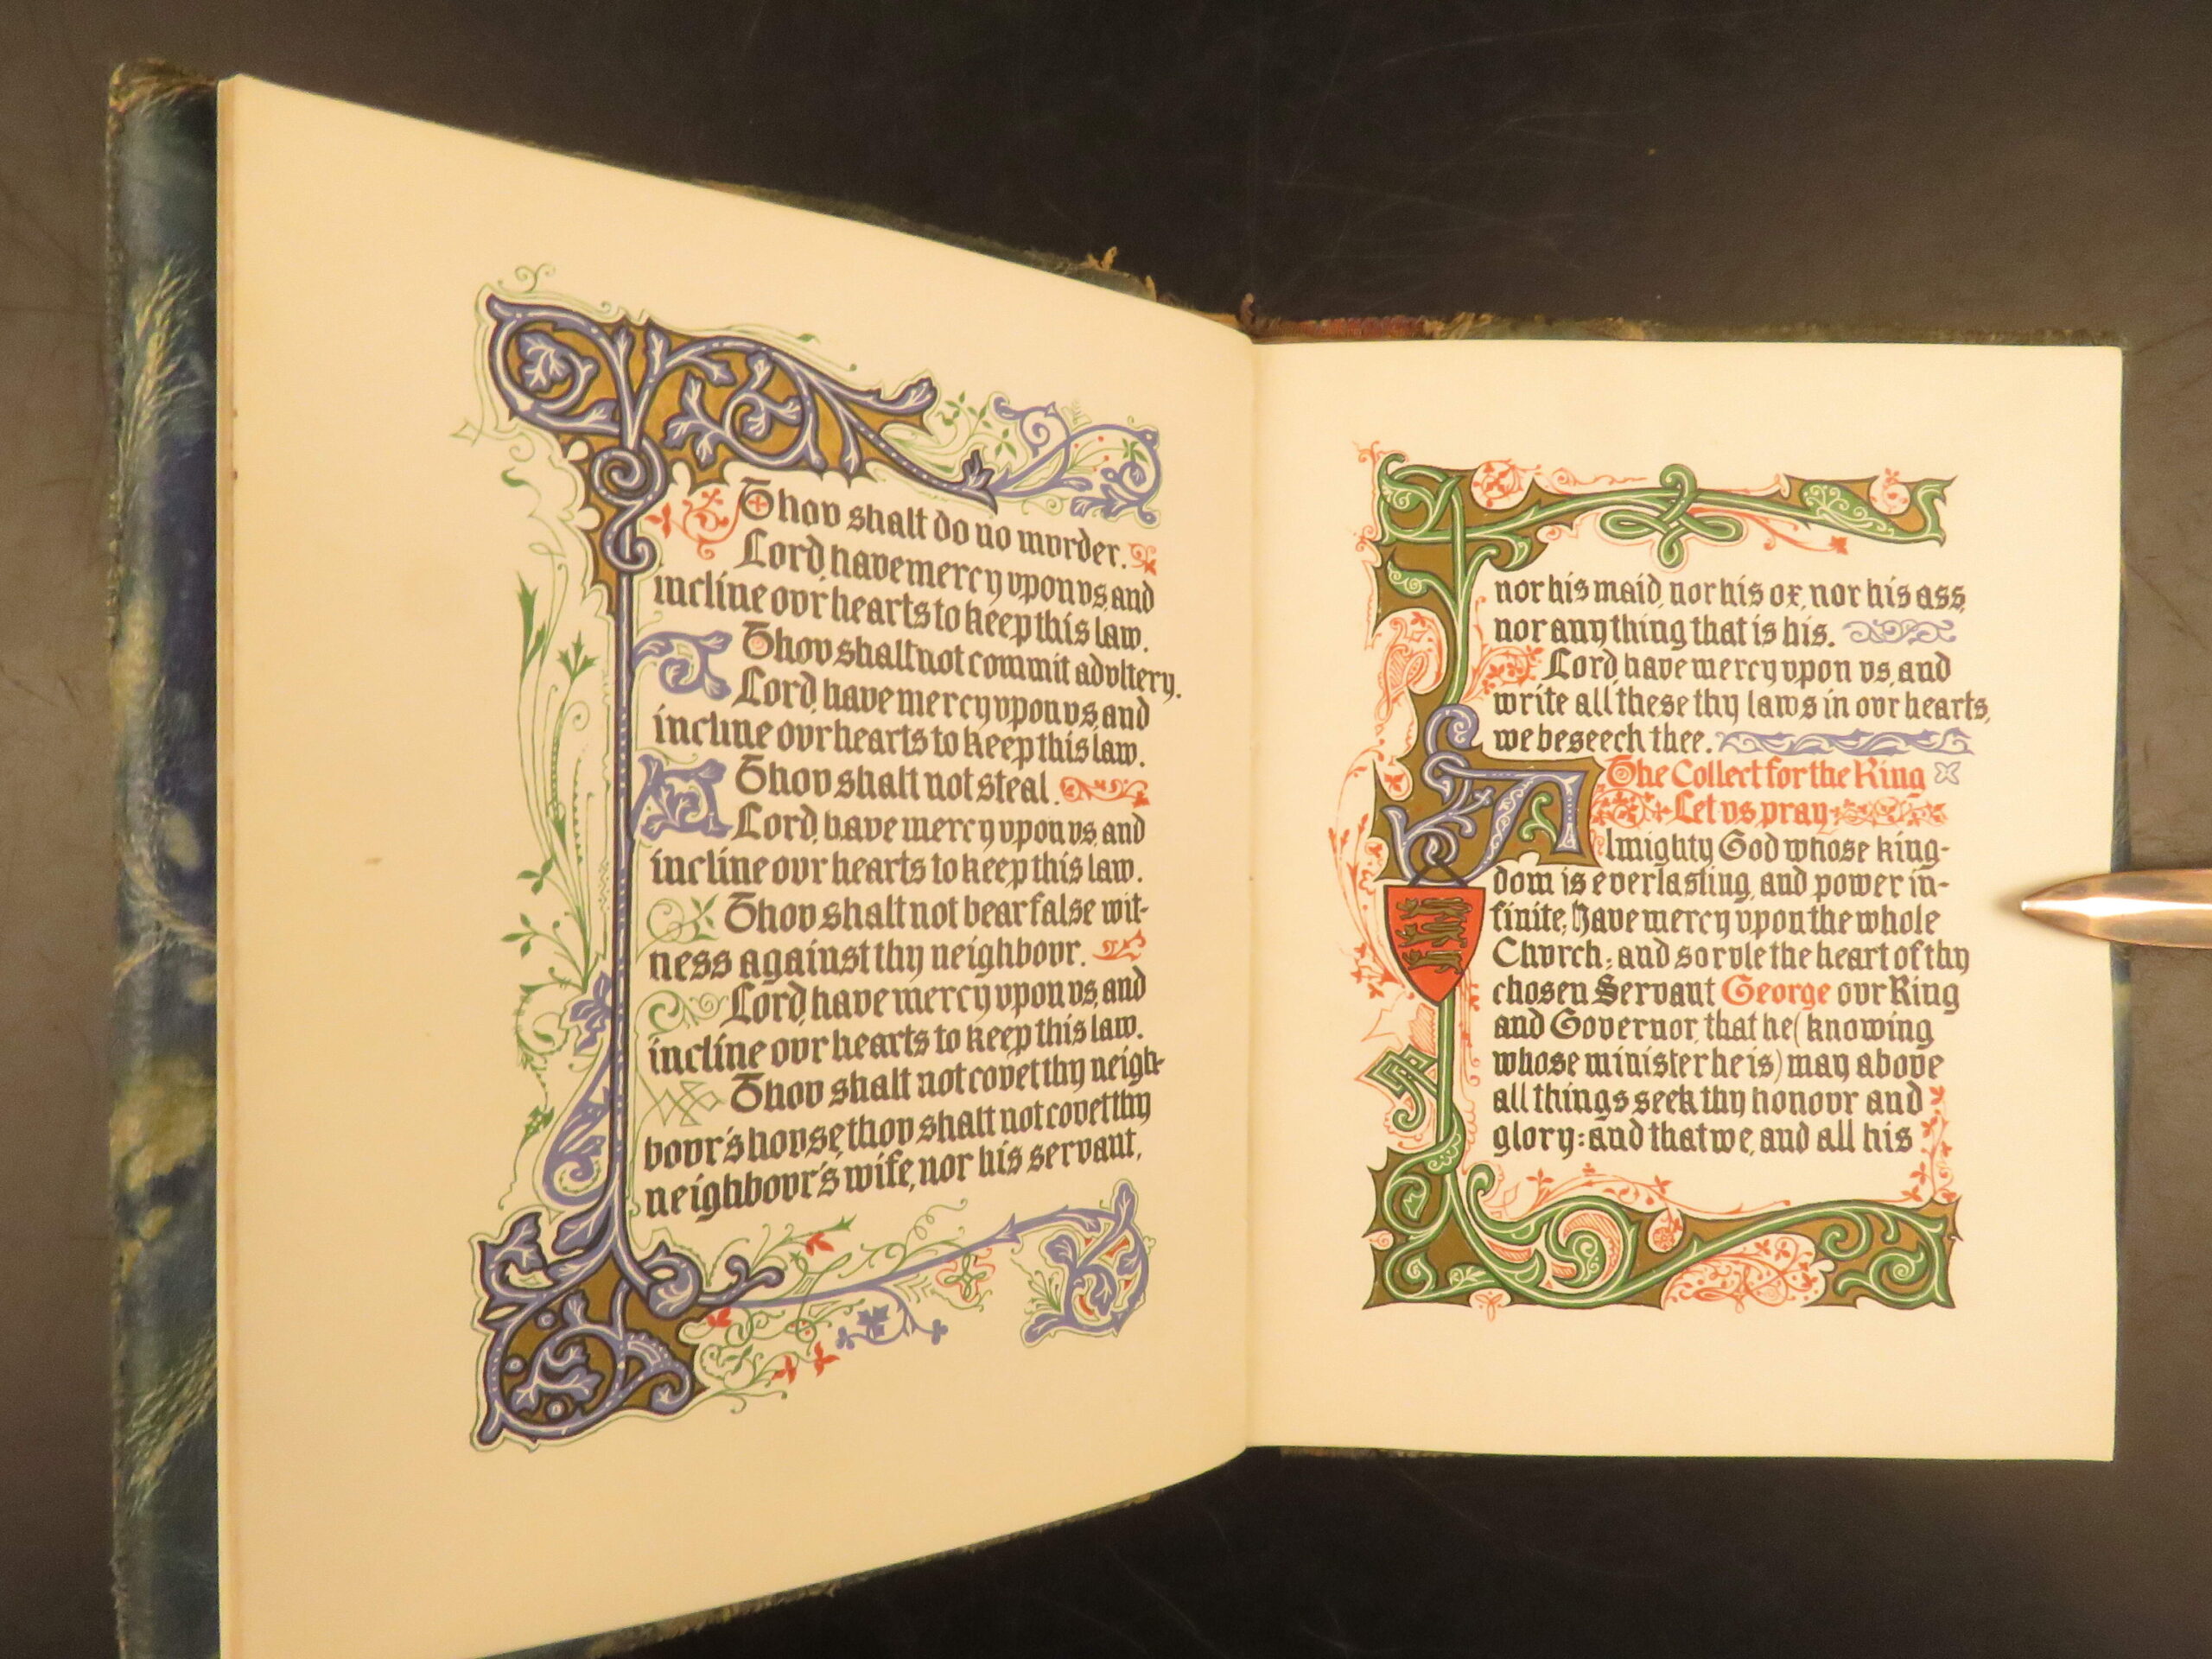 Thov shalt do no mvrder.
Lord, have mercy vpon vs, and
incline ovr hearts to keep this law.
Thov shalt not commit advltery.
Lord, have mercy vpon vs, and
incline ovr hearts to keep this law.
Thov shalt not steal.
Lord, have mercy vpon vs, and
incline ovr hearts to keep this law.
Thov shalt not bear false wit-
ness against thy neighbovr.
Lord, have mercy vpon vs, and
incline ovr hearts to keep this law.
Thov shalt not covet thy neigh-
bovr's hovse, thov shalt not covet thy
neighbovr's wife, nor his servant,
nor his maid, nor his ox, nor his ass,
nor any thing that is his.
Lord, have mercy vpon vs, and
write all these thy laws in ovr hearts,
we beseech thee.
The Collect for the King
Let vs pray
Almighty God whose king-
dom is everlasting, and power in-
finite; Have mercy vpon the whole
Chvrch; and so rvle the heart of thy
chosen Servant George ovr King
and Governor, that he (knowing
whose minister he is) may above
all things seek thy honovr and
glory: and that we, and all his